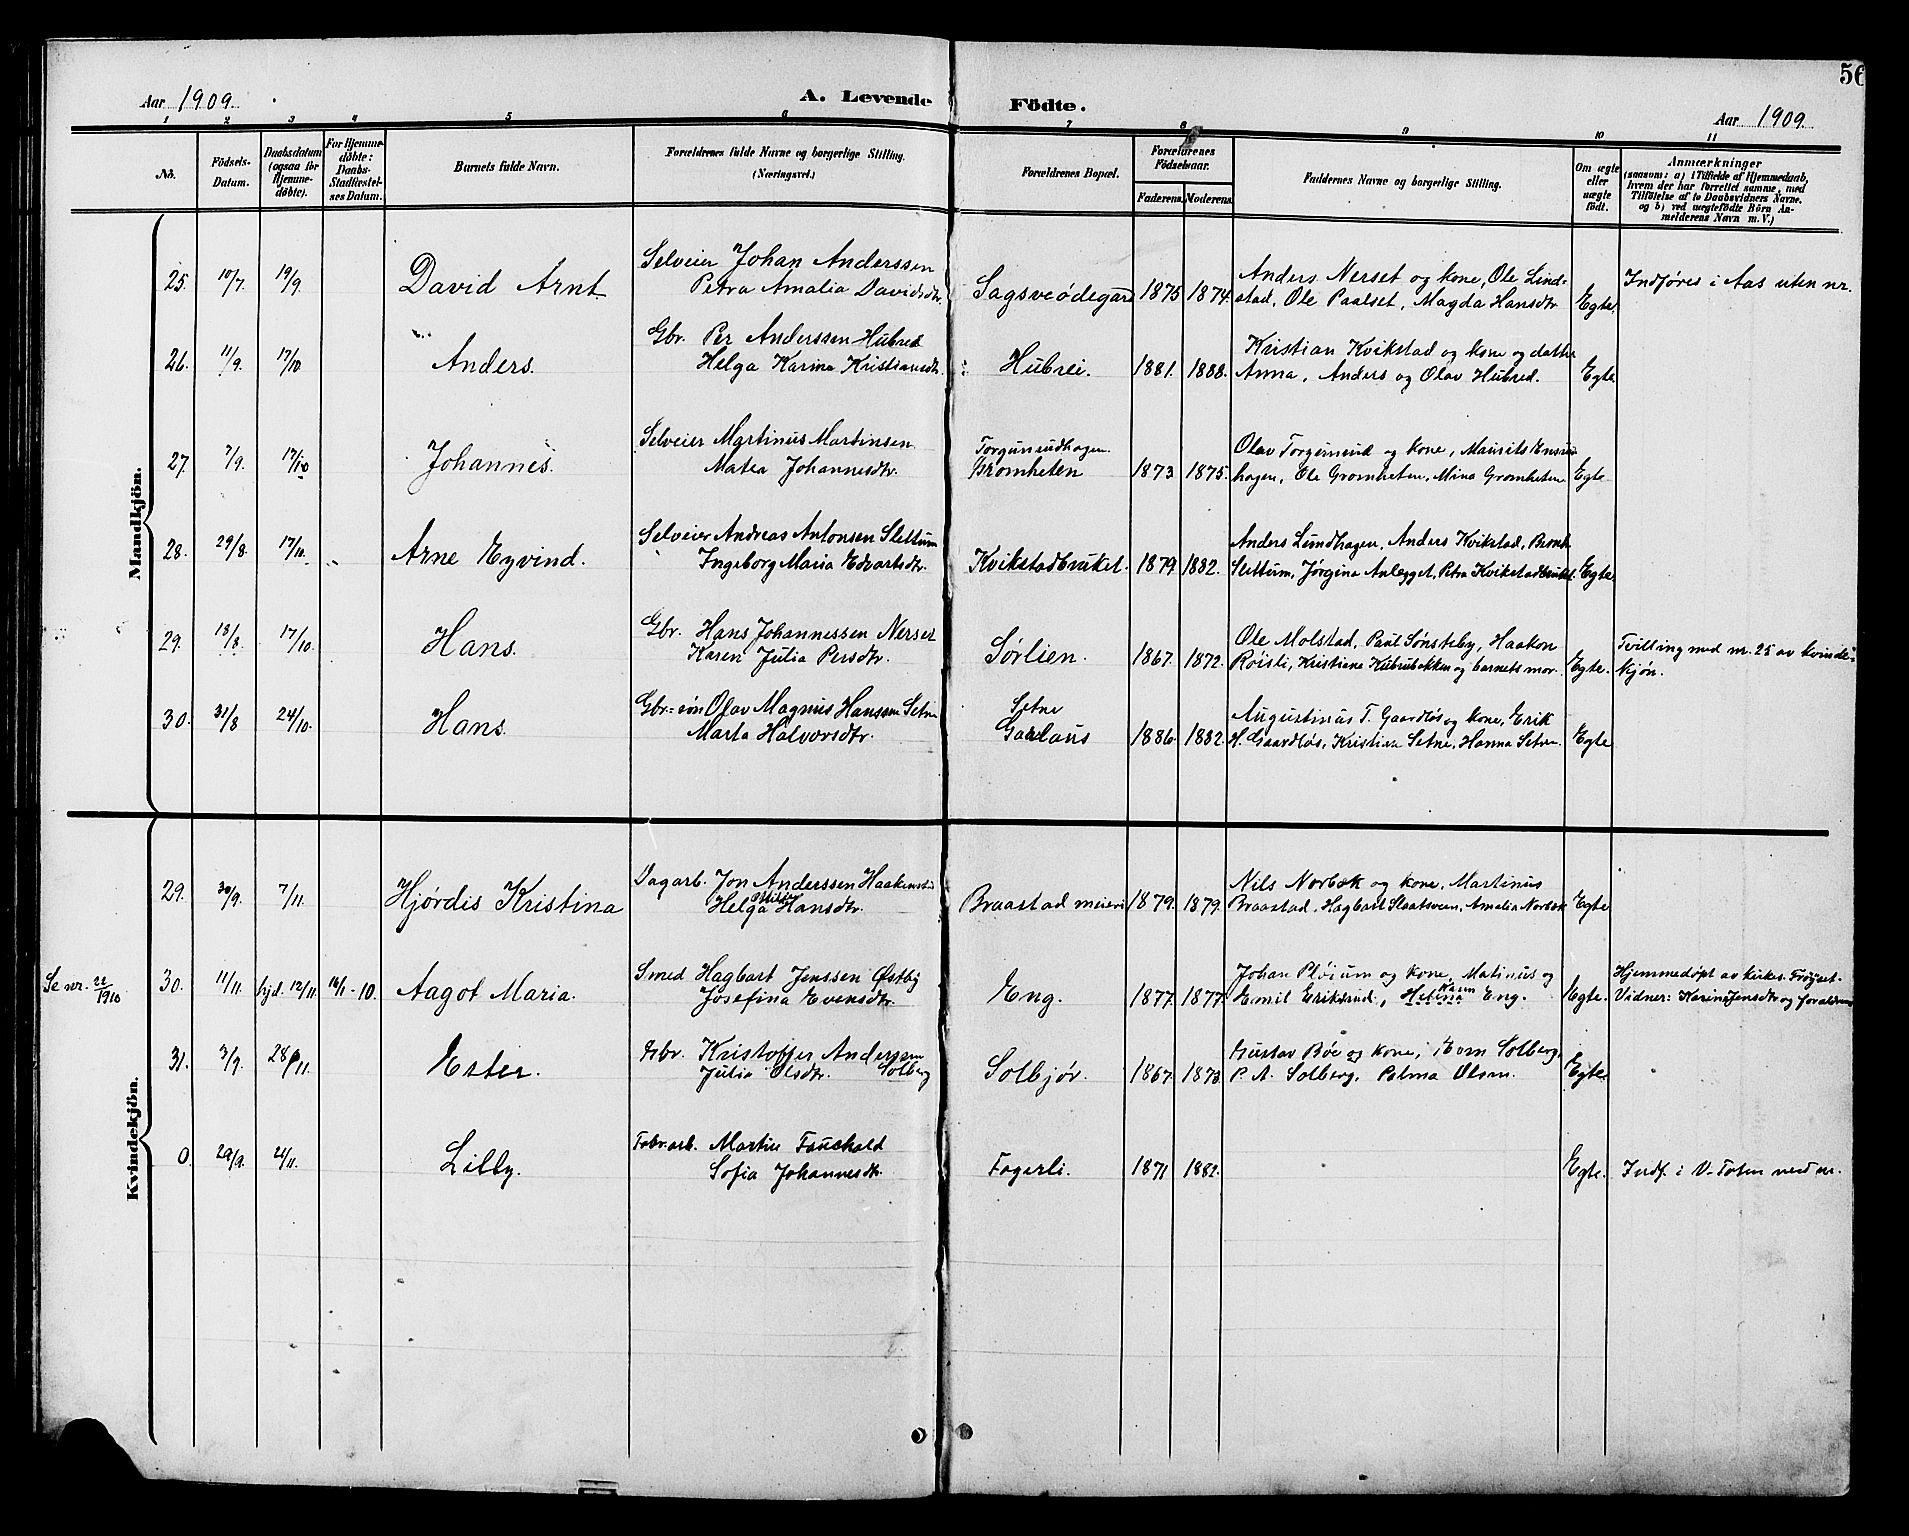 56
Aar 1909.
A. Levende Födte.
Aar 1909.
1 2 3 4 5 6 7 8 9 10 11
No.
Födsels-Datum.
Daabsdatum (ogsaa for Hjemme-döbte).
For Hjemme-döbte: Daabs-Stadfæstel-ses Datum.
Barnets fulde Navn.
Forældrenes fulde Navne og borgerlige Stilling.
(Næringsvei.)
Forældrenes Bopæl.
Forældrenes Födselsaar.
Faderens. Moderens.
Faddernes Navne og borgerlige Stilling.
Om ægte eller uægte födt.
Anmærkninger
(saasom: a) i Tilfælde af Hjemmedaab, hvem der har forrettet samme, med Tilföielse af to Daabsvidners Navne, og b) ved uægtefödte Börn An-melderens Navn m. V.)
Mandkjön.
25. 10/7. 19/9. David Arnt. Selveier Johan Anderssen
Petra Amalia Davidsdtr. Sagsveödegard 1875 1874. Anders Nerset og kone, Ole Lind-
stad, Ole Paalset, Magda Hansdtr Egte. Indføres i Aas uten nr.
26. 11/9. 17/10. Anders. Gbr. Per Anderssen Hubred
Helga Karina Kristiansdtr. Hubrei. 1881. 1888. Kristian Kvikstad og kone og datter
Anna, Anders og Olav Hubred. Egte
27. 7/9. 17/10 Johannes. Selveier Martinus Martinsen.
Matea Johannesdtr. Torgunrudhagen.
Bromheten 1873 1875. Olav Torgunrud og kone, Maurits
hagen, Ole Gromheten, Mina Gromheten Egte
28. 29/8. 17/10. Arne Eyvind. Selveier Andreas Antonsen Slettum
Ingeborg Maria Edvartsdtr. Kvikstadbruket. 1879 1882. Anders Lundhagen, Anders Kvikstad, Bernt
Slettum, Jørgina Anlegget, Petra Kvikstadbruket. Egte
29. 18/8. 17/10. Hans. Gbr. Hans Johannessen Nerset
Karen Julia Persdtr. Sørlien. 1867. 1872. Ole Molstad, Paul Sønsteby, Haakon
Røisli, Kristiane Hubrubakken og barnets mor. Egte. Tvilling med nr. 25 av kvinde-
kjøn.
30. 31/8 24/10. Hans. Gbr.-søn Olav Magnus Hanssen Setne
Marta Halvorsdtr. Setne
Garlaus 1886. 1882. Augustinus T. Gaardløs og kone, Erik
H. Gaardløs, Kristian Setne, Hanna Setne. Egte
Kvindekjön.
29. 30/9. 7/11. Hjørdis Kristina Dagarb. Jon Anderssen Haakenstad
Otilie
Helga Hansdtr. Braastad meieri 1879. 1879. Nils Norbæk og kone, Martinus
Braastad, Hagbart Slaatsveen, Amalia Norbæk Egte
Se nr. 22/1910 30. 11/11. hjd. 12/11. 16/1-10. Aagot Maria. Smed Hagbart Jenssen Østby
Josefina Evensdtr. Eng. 1877. 1877. Johan Pløium og kone, Matinus og
Karen
Emil Eriksrud, Helena Eng. Egte. Hjemmedøpt av kirkes. Frøyset-
Vidner: Karina Jensdtr og forældrene
31. 3/9. 28/11. Ester. Gbr. Kristoffer Anderssen
Julia Olsdtr. Solberg Solbjør. 1867. 1873. Gustav Bøe og kone, Solberg,
P. A. Solberg, Palma Olsen. Egte.
0. 29/9. 21/11. Lilly. Fabr.arb. Martin Fauchald
Sofia Johannesdtr. Fagerli. 1871 1882. Egte. Indf. i V-Toten med nr.